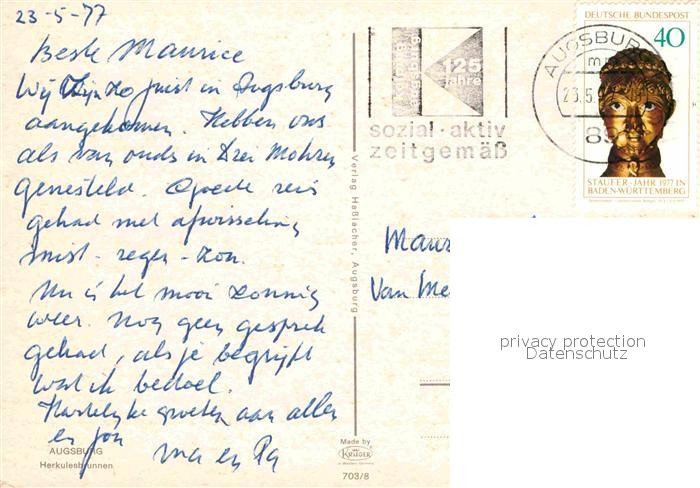 23-5-77
Beste Maurice
Wij zijn zo juist in Augsburg
aangekomen. Hebben ons
als van ouds in Drei Mohren
genesteld. Goede reis
gehad met afwisseling
mist - regen - zon.
Nu is het mooi zonnig
weer. Nog geen gesprek
gehad, als je begrijpt
wat ik bedoel.
Hartelijke groeten aan allen
en jou
ma en Pa
AUGSBURG
Herkulesbrunnen
Verlag Haßlacher, Augsburg
Made by
KRÜGER
703/8
125
Jahre
sozial · aktiv
zeitgemäß
AUGSBURG
23.5.
89
DEUTSCHE BUNDESPOST
40
STAUFER-JAHR 1977 IN
BADEN-WÜRTTEMBERG
Van Me
privacy protection
Datenschutz